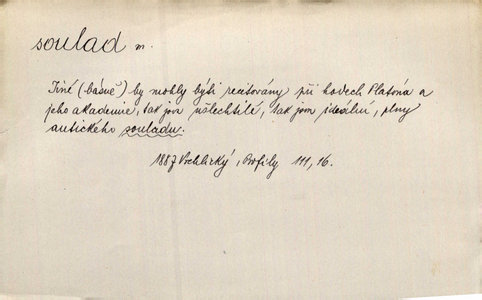 soulad m.
Jiné (básně) by mohly býti recitovány při hodech Platóna a
jeho akademie, tak jsou ušlechtilé, tak jsou ideální, plny
antického souladu.
1887 Vrchlický, Profily 111, 16.